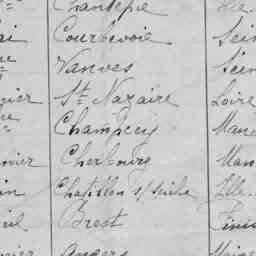 Chantepie Ille.
ai Courbevoie Sein
Vanves Sein
vier St Nazaire Loire
Champcey Manc
nvier Cherbourg Man
in Chatillon s/ Seiche Ille.
Brest Finis
vier Angers Maine